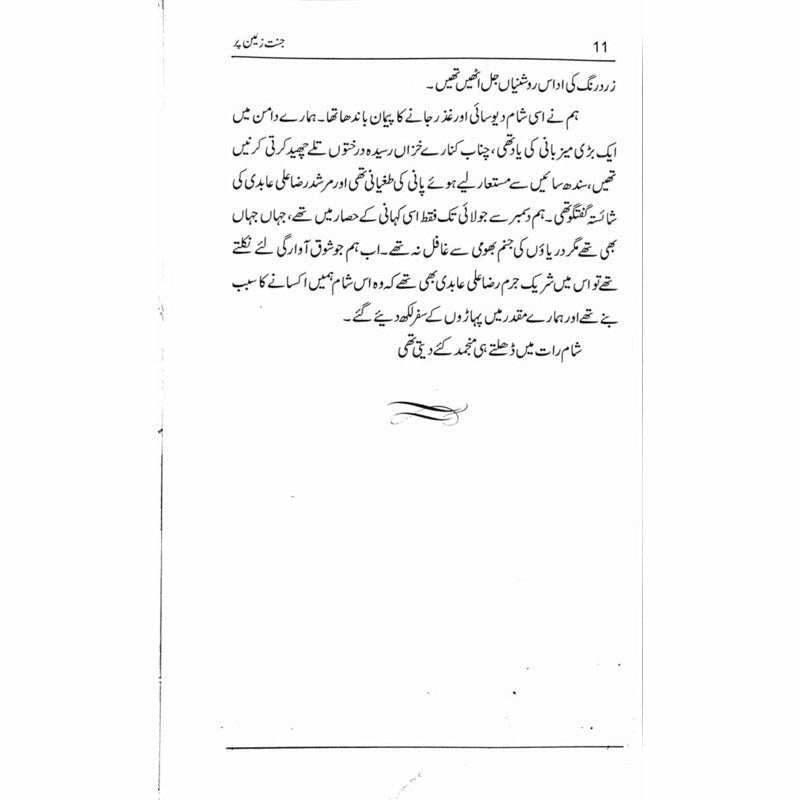 جنت زمین پر 11
زرد رنگ کی اداس روشنیاں جل اٹھیں تھیں۔
ہم نے اسی شام دیوسائی اور غذر جانے کا پیمان باندھا تھا۔ ہمارے دامن میں
ایک بڑی میزبانی کی یاد تھی، چناب کنارے خزاں رسیدہ درختوں تلے چھید کرتی کرنیں
تھیں، سندھ سائیں سے مستعار لیے ہوئے پانی کی طغیانی تھی اور مرشد رضا علی عابدی کی
شائستہ گفتگو تھی۔ ہم دسمبر سے جولائی تک فقط اسی کہانی کے حصار میں تھے، جہاں جہاں
بھی تھے مگر دریاؤں کی جنم بھومی سے غافل نہ تھے۔ اب ہم جو شوق آوارگی لئے نکلتے
تھے تو اس میں شریک جرم رضا علی عابدی بھی تھے کہ وہ اس شام ہمیں اکسانے کا سبب
بنے تھے اور ہمارے مقدر میں پہاڑوں کے سفر لکھ دیئے گئے۔
شام رات میں ڈھلتے ہی منجمد کئے دیتی تھی